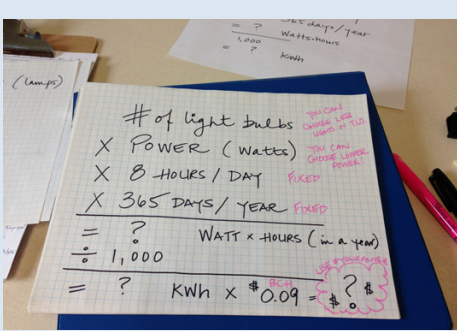 365 days / year
= ? Watts·hours
1,000
= ? Kwh
(lamps)
# of light bulbs
YOU CAN
CHOOSE LESS
X POWER (watts)
YOU CAN
CHOOSE LOWER
POWER!
X 8 HOURS / DAY FIXED
X 365 DAYS / YEAR FIXED
= ? WATT × HOURS (in a year)
÷ 1,000
BCH
= ? KWh × $0.09 = $ ? $